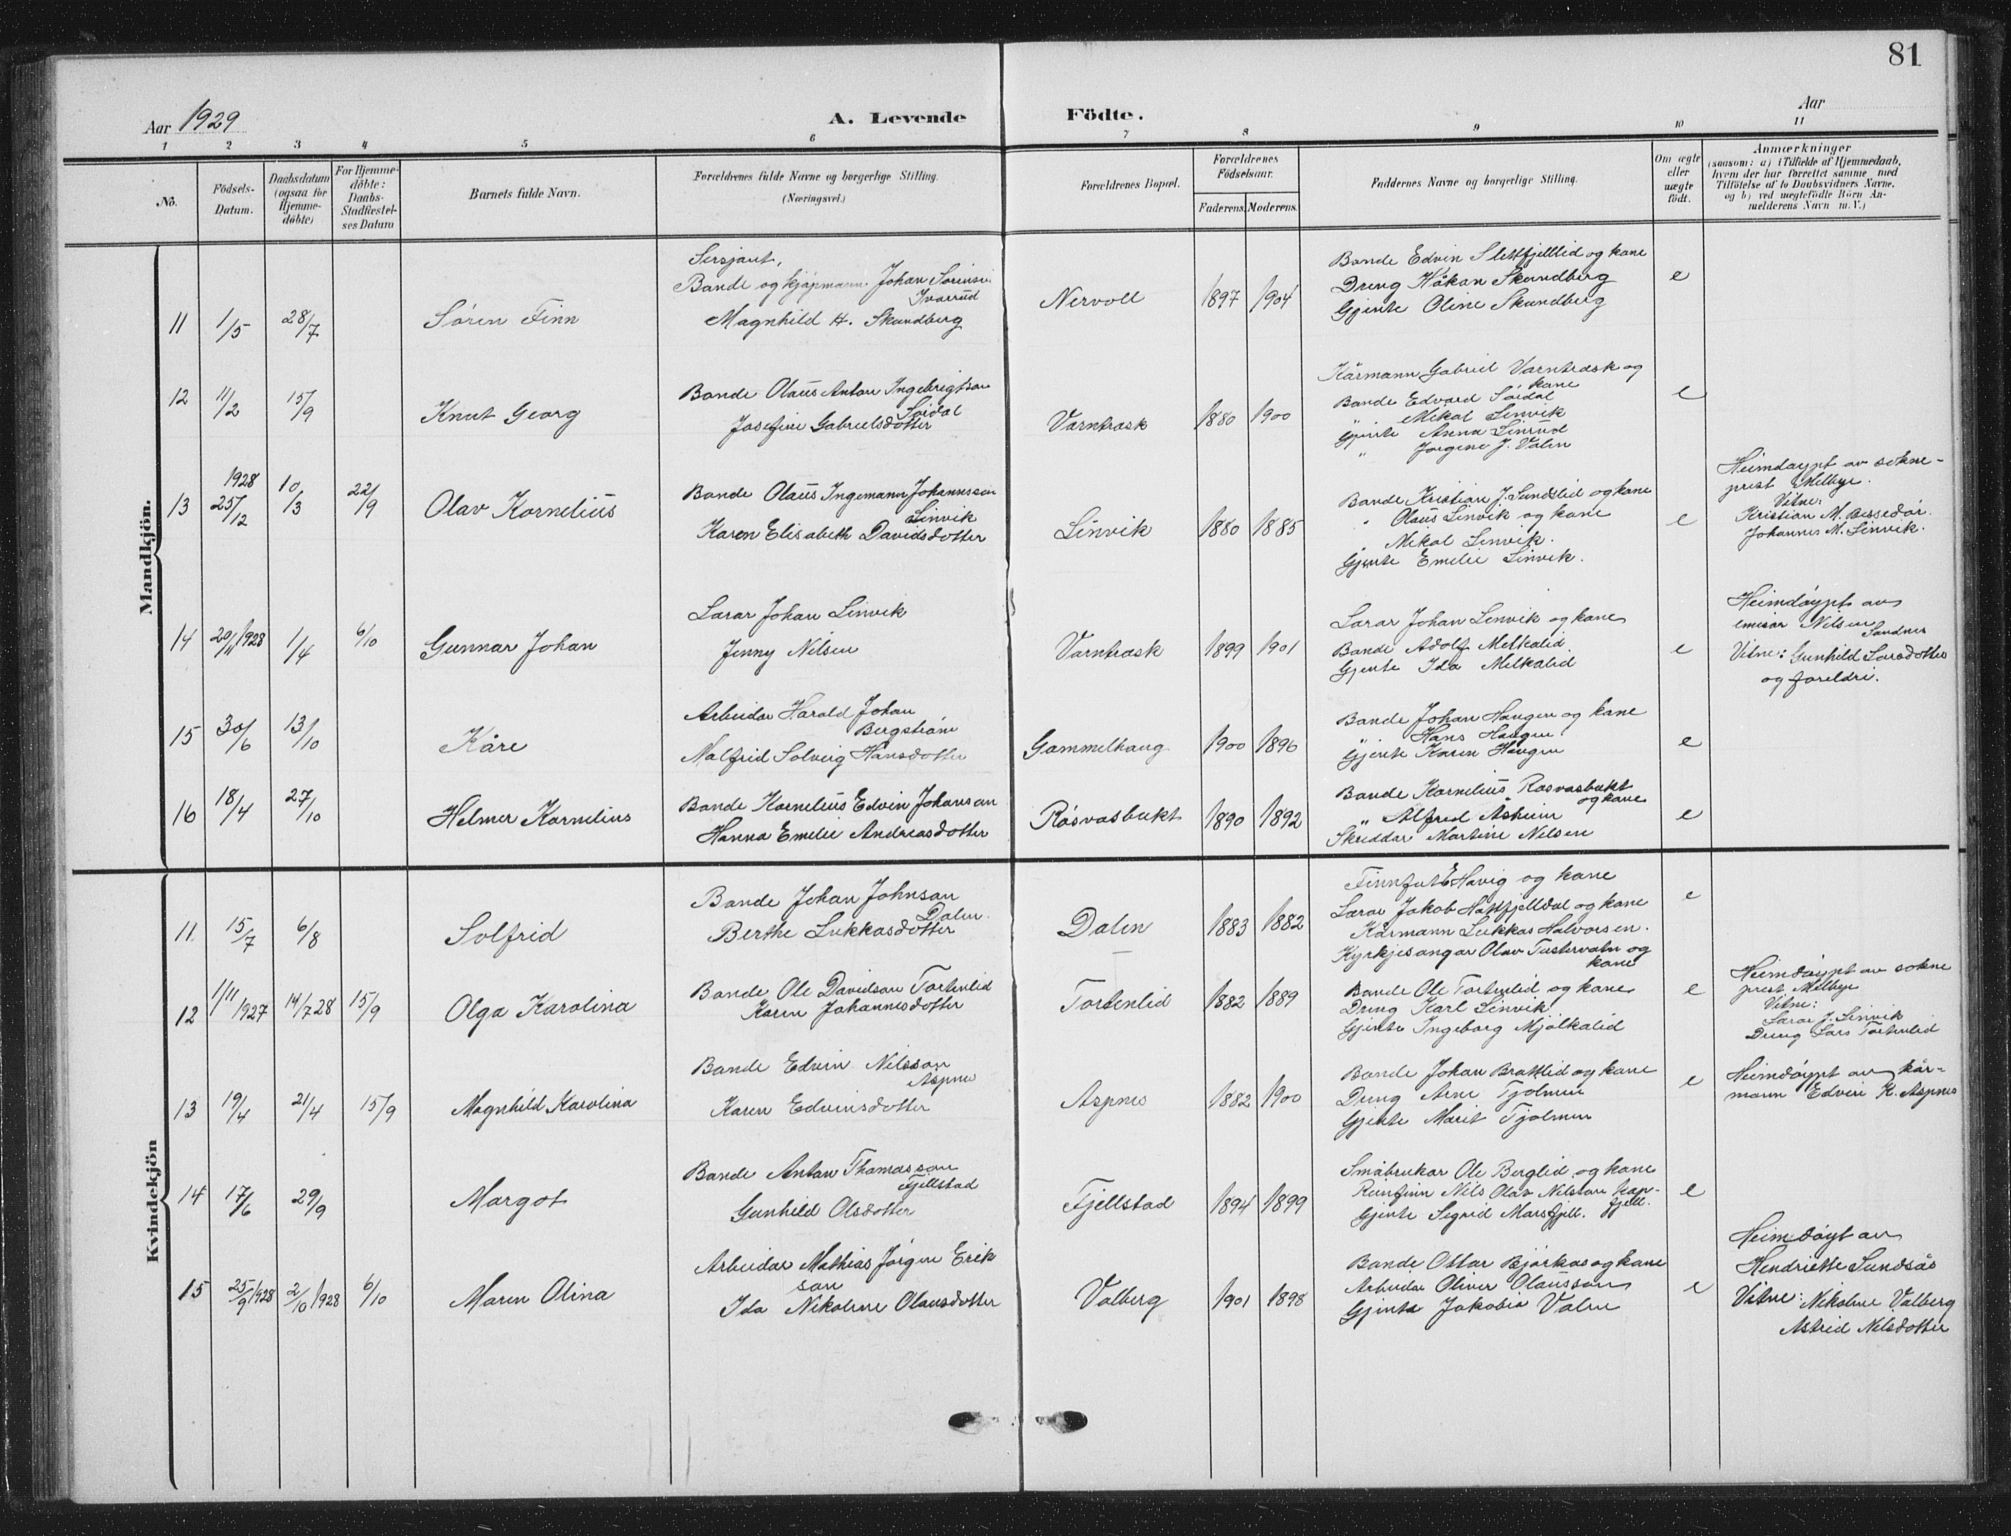 81
Aar 1929
A. Levende Födte.
Aar
1 2 3 4 5 6 7 8 9 10 11
No.
Födsels-Datum.
Daabsdatum (ogsaa for Hjemme-döbte)
For Hjemme-döbte: Daabs-Stadfæstel-ses Datum
Barnets fulde Navn.
Forældrenes fulde Navne og borgerlige Stilling.
(Næringsvei.)
Forældrenes Bopæl.
Forældrenes Födselsaar.
Faderens. Moderens.
Faddernes Navne og borgerlige Stilling.
Om ægte eller uægte födt.
Anmærkninger
(saasom: a) i Tilfælde af Hjemmedaab,
hvem der har forrettet samme, med
Tilföielse af to Daabsvidners Navne,
og b) ved uægtefödte Börn An-
melderens Navn m. V.)
Mandkjön.
Sersjant,
Bonde og kjøpmann Johan Sørensen
Ivarrud
Magnhild H. Skundberg
11 1/5 28/7 Søren Finn
Nervoll 1897 1904
Bonde Edvin Slettfjellid og kone
Dreng Håkon Skundberg
Gjente Oline Skundberg
e
12 11/2 15/9 Knut Georg
Bonde Olaus Anton Ingebrigtson
Søidal
Josefine Gabrielsdotter
Varntræsk 1880 1900
Kårmann Gabriel Varntræsk og
kone
Bonde Edvard Søidal
" Mikal Linvik
Gjente Anna Linrud
" Jorgine J. Valen
e
1928
13 25/12 10/3 22/9 Olav Kornelius
Bonde Olaus Ingemann Johannesson
Linvik
Karen Elisabeth Davidsdotter
Linvik 1880 1885
Bonde Kristian J. Sundslid og kone
" Olaus Linvik og kone
" Mikal Linvik.
Gjente Emelie Linvik.
e
Heimdøypt av sokne-
prest Melbye.
Vitne:
Kristian M. Bessedør.
Johannes M. Linvik.
14 20/11 1928 1/4 6/10 Gunnar Johan
Lærar Johan Linvik
Jenny Nilsen
Varntræsk 1899 1901
Lærar Johan Linvik og kone
Bonde Adolf Melkalid
Gjente Ida Melkalid
e
Heimdøypt av
emisær Nilsen
Sandnes
Vitne: Gunhild Larsdotter
og foreldri.
15 30/6 13/10 Kåre
Arbeidar Harald Johan
Bergstrøm
Malfrid Solveig Hansdotter
Gammelhaug 1900 1896
Bonde Johan Haugen og kone
" Hans Haugen
Gjente Karen Haugen
e
16 18/4 27/10 Helmer Kornelius
Bonde Kornelius Edvin Johanson
Hanna Emelie Andreasdotter
Røsvasbukt 1890 1892
Bonde Kornelius Røsvasbukt
og kone
" Alfred Åsheim
Skreddar Martine Nilsen
e
Kvindekjön
11 15/7 6/8 Solfrid
Bonde Johan Johnson
Dalen.
Berthe Lukkasdotter
Dalen 1883 1882
Finnfut E Havig og kone
Lærar Jakob Hattfjelldal og kone
Kårmann Lukkas Halvorsen.
Kyrkjesongar Olav Tustervatn og
kone
e
12 1/11 1927 14/7 28 15/9 Olga Karolina
Bonde Ole Davidson Tortenlid
Karen Johannesdotter
Tortenlid 1882 1889
Bonde Ole Tortenlid og kone
Dreng Karl Linvik
Gjente Ingeborg Mjølkalid
e
Heimdøypt av sokne
prest Melbye
Vitne:
Lærar J. Linvik
Dreng Lars Tortenlid
13 19/4 21/4 15/9 Magnhild Karolina
Bonde Edvin Nilsson
Aspnes
Karen Edvinsdotter
Aspnes 1882 1900
Bonde Johan Brattlid og kone
Dreng Arne Tjolmen
Gjente Marit Tjolmen
e
Heimdøypt av kår-
mann Edvin K. Aspnes
14 17/6 29/9 Margot
Bonde Anton Thomasson
Fjellstad
Gunhild Olsdotter
Fjellstad 1894 1899
Småbrukar Ole Berglid og kone
Reinfinn Nils Olav Nilsson Kap-
fjell.
Gjente Segrid Marsfjell.
e
15 25/9 1928 2/10 1928 6/10 Maren Olina
Arbeidar Mathias Jørgen Erik
son
Ida Nikoline Olausdotter
Valberg 1901 1898
Bonde Ottar Bjørkås og kone
Arbeidar Oliver Olausson
Gjenta Jakobia Valen
e
Heimdøypt av
Hendriette Sundsås
Vitne: Nikoline Valberg
Astrid Nilsdotter